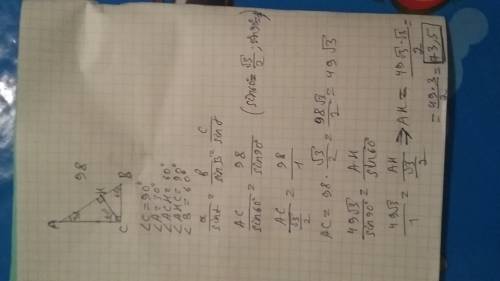 A
98
30°
H
B
C
∠C = 90°
∠A = 30°
∠ACH = 60°
∠AHC = 90°
∠B = 60°
a/sinα = b/sinβ = c/sinγ
AC/sin60° = 98/sin90°
AC/(√3/2) = 98/1
AC = 98 · √3/2 = 98√3/2 = 49√3
49√3/sin90° = AH/sin60°
49√3/1 = AH/(√3/2) ⇒ AH = 49√3·√3/2 =
= 49·3/2 = 73,5